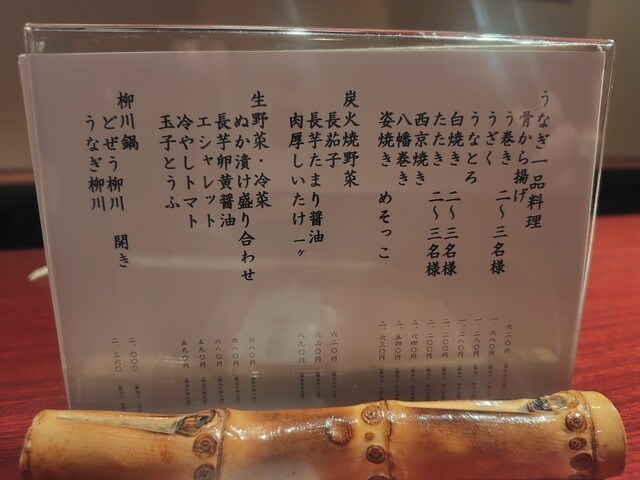 うなぎ一品料理
骨から揚げ 六二〇円
う巻き 二〜三名様 一、六八〇円
うざく 一、二八〇円
うなとろ 一、二八〇円
白焼き 二〜三名様
たたき 二〜三名様
西京焼き 二、六四〇円
八幡巻き 二、五四〇円
姿焼き めそっこ 二、六三〇円
炭火焼野菜
長茄子 六二〇円
長芋たまり醤油 六二〇円
肉厚しいたけ 一ヶ 八九〇円
生野菜・冷菜
ぬか漬け盛り合わせ 六八〇円
長芋卵黄醤油 六八〇円
エシャレット 六八〇円
冷やしトマト 五九〇円
玉子とうふ 五九〇円
柳川鍋
どぜう柳川 開き 二、〇〇〇
うなぎ柳川 二、三六〇